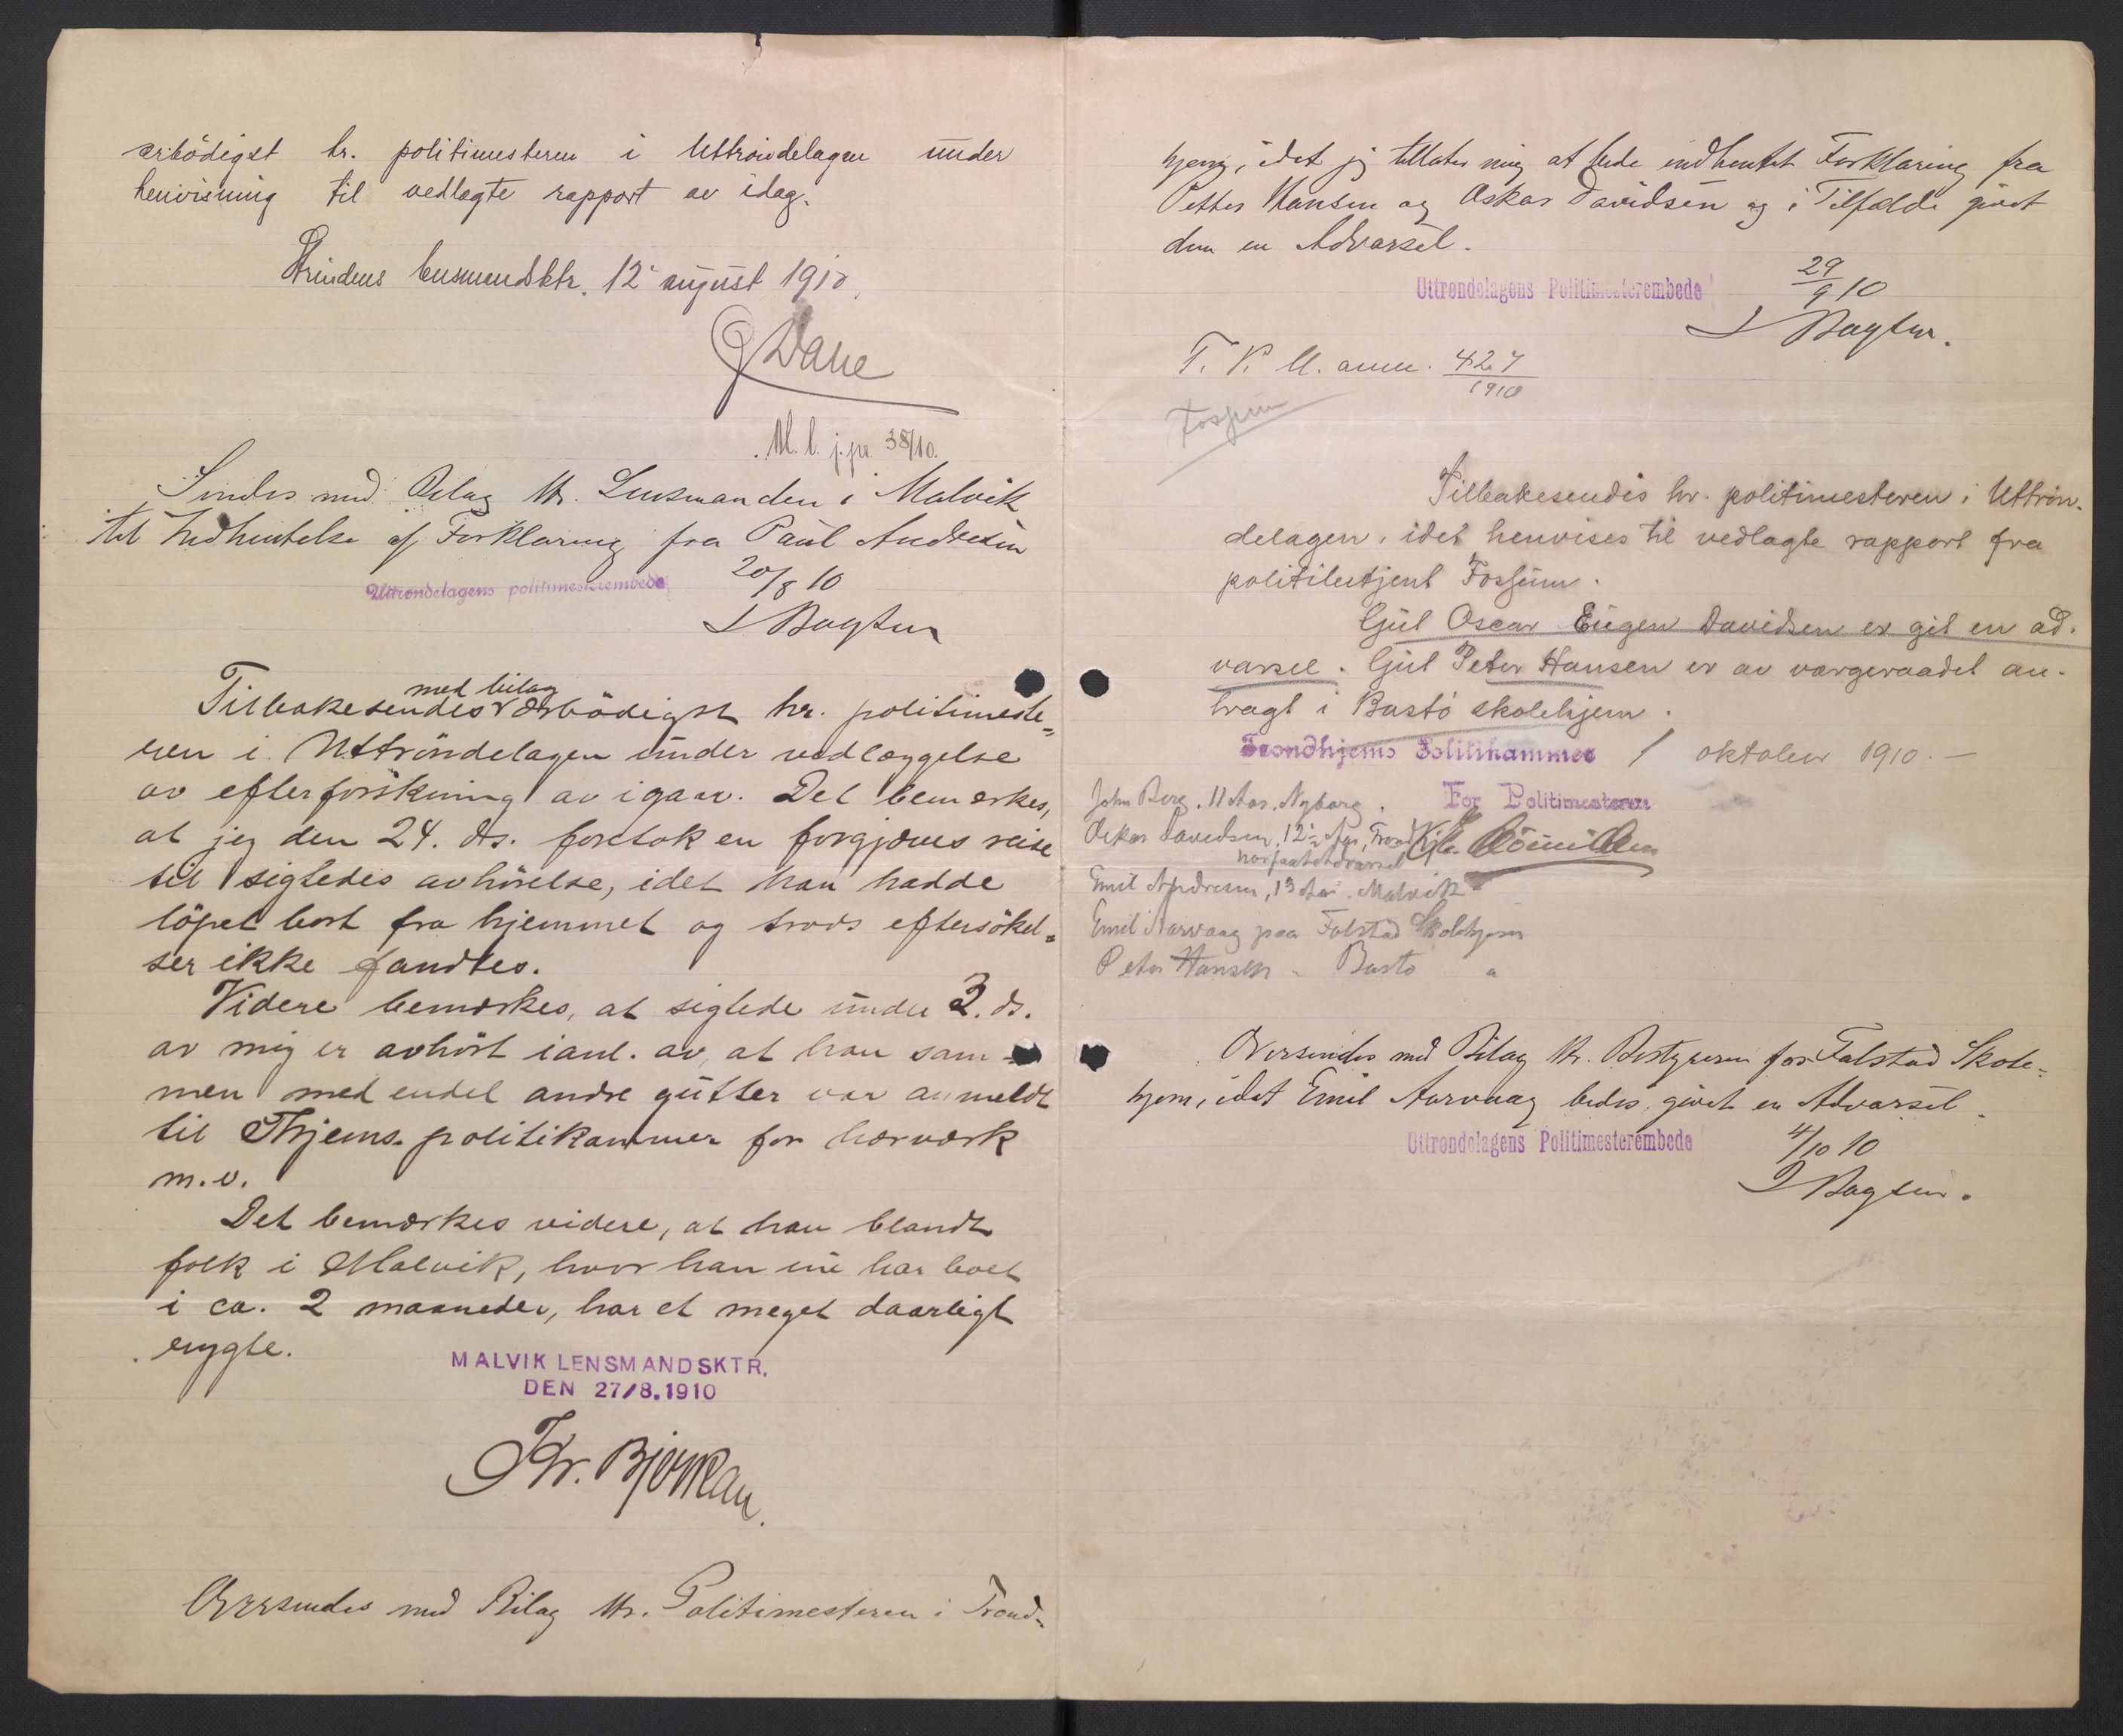 ærbödigst hr. politimesteren i Uttröndelagen under
henvisning til vedlagte rapport av idag.
Strindens lensmandsktr. 12' august 1910.
Dahe
M. l. j.pr. 38/10.
Sendes med Bilag Hr. Lensmanden i Malvik
til Indhentelse af Forklaring fra Paul Andresen
Uttrondelagens politimesterembede
20/8 10
Bagten
med bilag
Tilbakesendes ærbödigst hr. politimeste=
ren i Uttröndelagen under vedlæggelse
av efterforskning av igaar. Det bemerkes,
at jeg den 24. ds. foretok en forgjæves reise
til sigtedes avhörelse, idet han hadde
löpet bort fra hjemmet og trods eftersökel=
ser ikke fandtes.
Videre bemærkes, at sigtede under 3. ds.
av mig er avhört ianl. av, at han sam-
men med endel andre gutter var anmeldt
til Thjems. politikammer for hærværk
m.v.
Det bemærkes videre, at han blandt
folk i Malvik, hvor han nu har boet
i ca. 2 maaneder, har et meget daarligt
rygte.
MALVIK LENSMANDSKTR.
DEN 27/8.1910
Kr. Björkan.
Oversendes med Bilag Hr. Politimesteren i Trond-
hjem, idet jeg tillater mig at bede indhentet Forklaring fra
Petter Hansen og Oskar Davidsen og i Tilfælde givet
dem en Advarsel.
Uttrøndelagens Politimesterembede
29/9 10
Bagten.
T. P. K. anm. 427/1910
Fossum
Tilbakesendes hr. politimesteren i Uttrön-
delagen, idet henvises til vedlagte rapport fra
politibetjent Fossum.
Gut Oscar Eugen Davidsen er git en ad-
varsel. Gut Peter Hansen er av vergeraadet an-
bragt i Bastö skolehjem.
Trondhjems Politikammer 1 oktober 1910.—
For Politimesteren
John Berg. 11 Aar. Nyborg.
Oskar Davidsen, 12½ Aar, Trondhj.
har faat Advarsel
Emil Andresen, 13 Aar. Malvik
Emil Aarvaag paa Falstad Skolehjem
Peter Hansen " Bastö "
Oversendes med Bilag Hr. Bestyreren for Falstad Skole=
hjem, idet Emil Aarvaag bedes givet en Advarsel.
Uttrøndelagens Politimesterembede
4/10 10
Bagten.